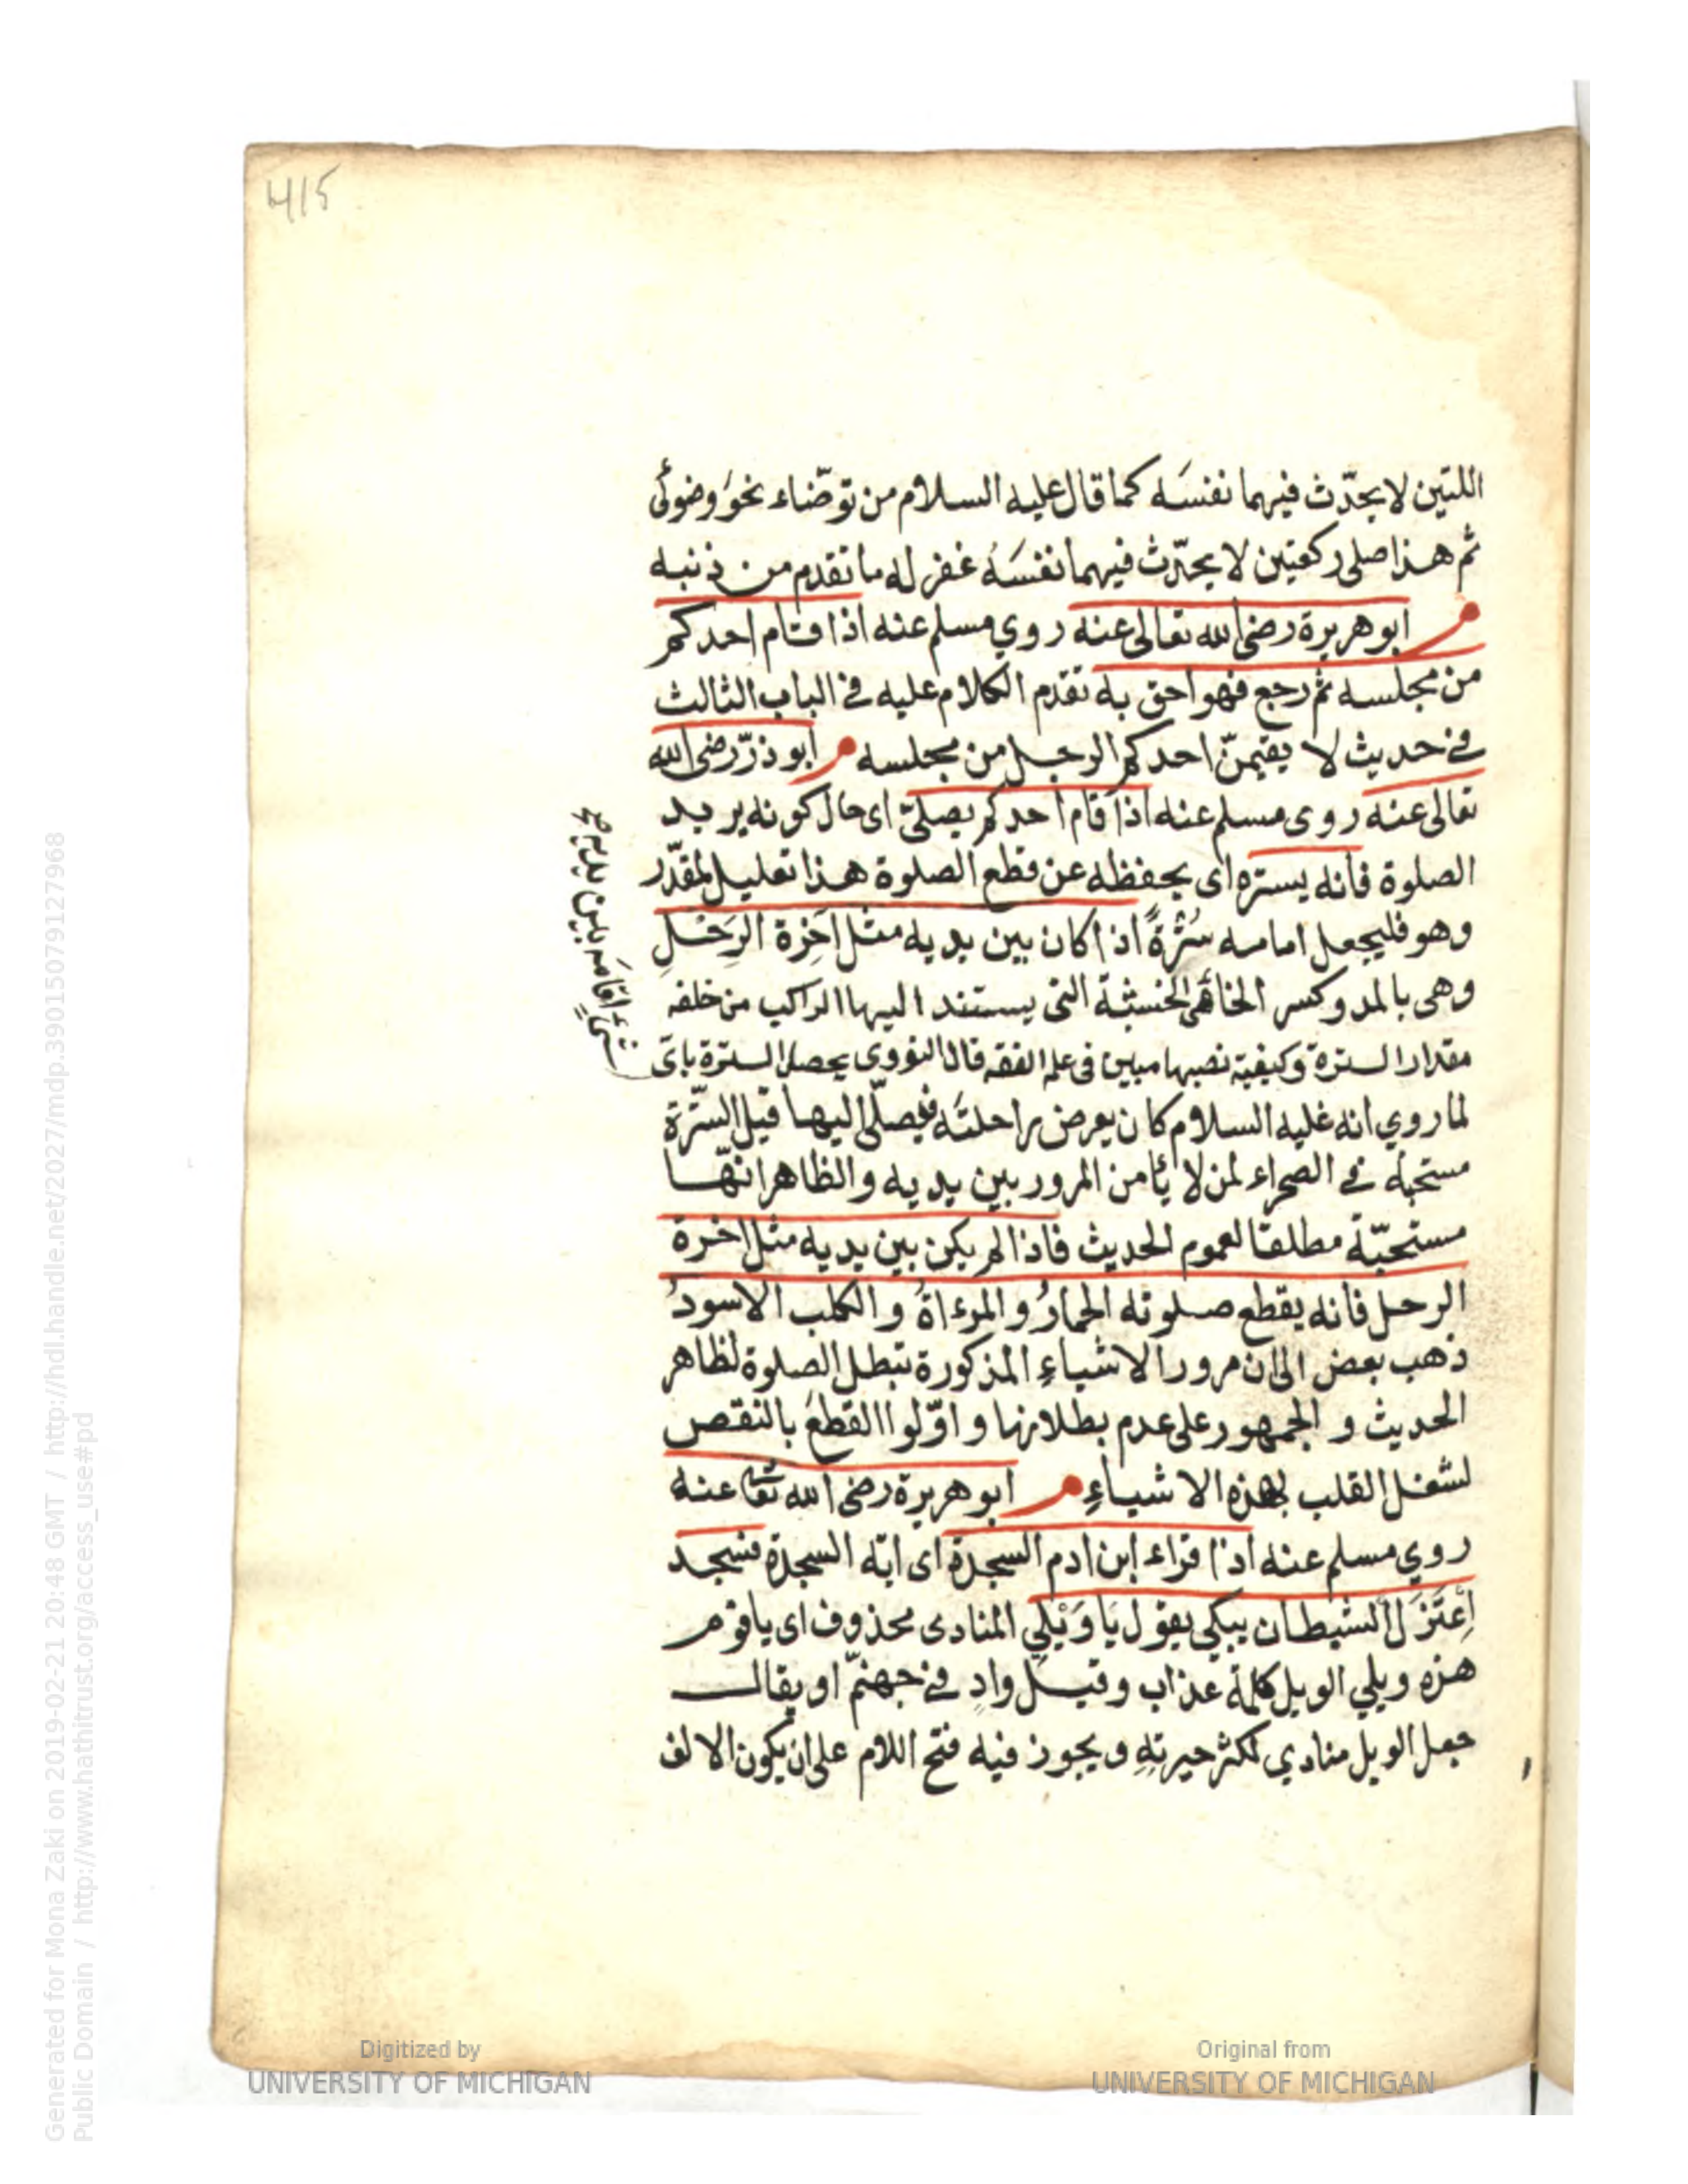 415
اللتين لا يحدّث فيهما نفسَه كما قال عليه السلام من توضّاء نحوَ وضوئى
ثم هذا صلى ركعتين لا يحدّث فيهما نفسَهُ غفر له ما تقدم من ذنبه
م ابو هريرة رضى الله تعالى عنه روي مسلم عنه اذا قام احدكم
من مجلسه ثم رجع فهو احق به تقدم الكلام عليه فى الباب الثالث
فى حديث لا يقيمنّ احدكم الرجل من مجلسه م ابو ذرّ رضى الله
تعالى عنه روى مسلم عنه اذا قام احدكم يصلىّ اى حال كونه يريد
الصلوة فانه يستره اى يحفظه عن قطع الصلوة هذا تعليل لمقدّر
وهو فليجعل امامه سُتْرةً اذا كان بين يديه مثل آخِرة الرَحْلِ
وهى بالمد وكسر الخاء هى الخشبة التى يستند اليها الراكب من خلفه
مقدار السترة وكيفية نصبها مبين فى علم الفقه قال النووى يحصل السترة باىّ
شىءٍ اقامَه بين يديه
لما روي انه عليه السلام كان يعرض راحلتَه فيصلّى اليها قيل السّترة
مستحبة فى الصحراء لمن لا يأمن المرور بين يديه والظاهر انّها
مستحبّة مطلقا لعموم الحديث فاذا لم يكن بين يديه مثل اخرة
الرحل فانه يقطع صلوته الحمارُ والمرءاةُ والكلب الاسودُ
ذهب بعض الى ان مرور الاشياءِ المذكورة تبطل الصلوة لظاهر
الحديث و الجمهور على عدم بطلانها و اوّلوا القطعَ بالنقص
لشغل القلب بهذه الاشياءِ م ابو هريرة رضى الله تعا عنه
روي مسلم عنه اذا قراء ابن ادم السجدة اى اية السجدة فسجد
اِعْتَزَلَ الشيطان يبكي يقول يَا وَيْلِي المنادى محذوف اى يا قوم
هذه ويلي الويل كلمة عذاب وقيل وادٍ فى جهنمّ او يقال
جعل الويل منادي لكثر حيرتهِ ويجوز فيه فتح اللام على ان يكون الالف
Generated for Mona Zaki on 2019-02-21 20:48 GMT / http://hdl.handle.net/2027/mdp.39015079127968
Public Domain / http://www.hathitrust.org/access_use#pd
Digitized by
UNIVERSITY OF MICHIGAN
Original from
UNIVERSITY OF MICHIGAN